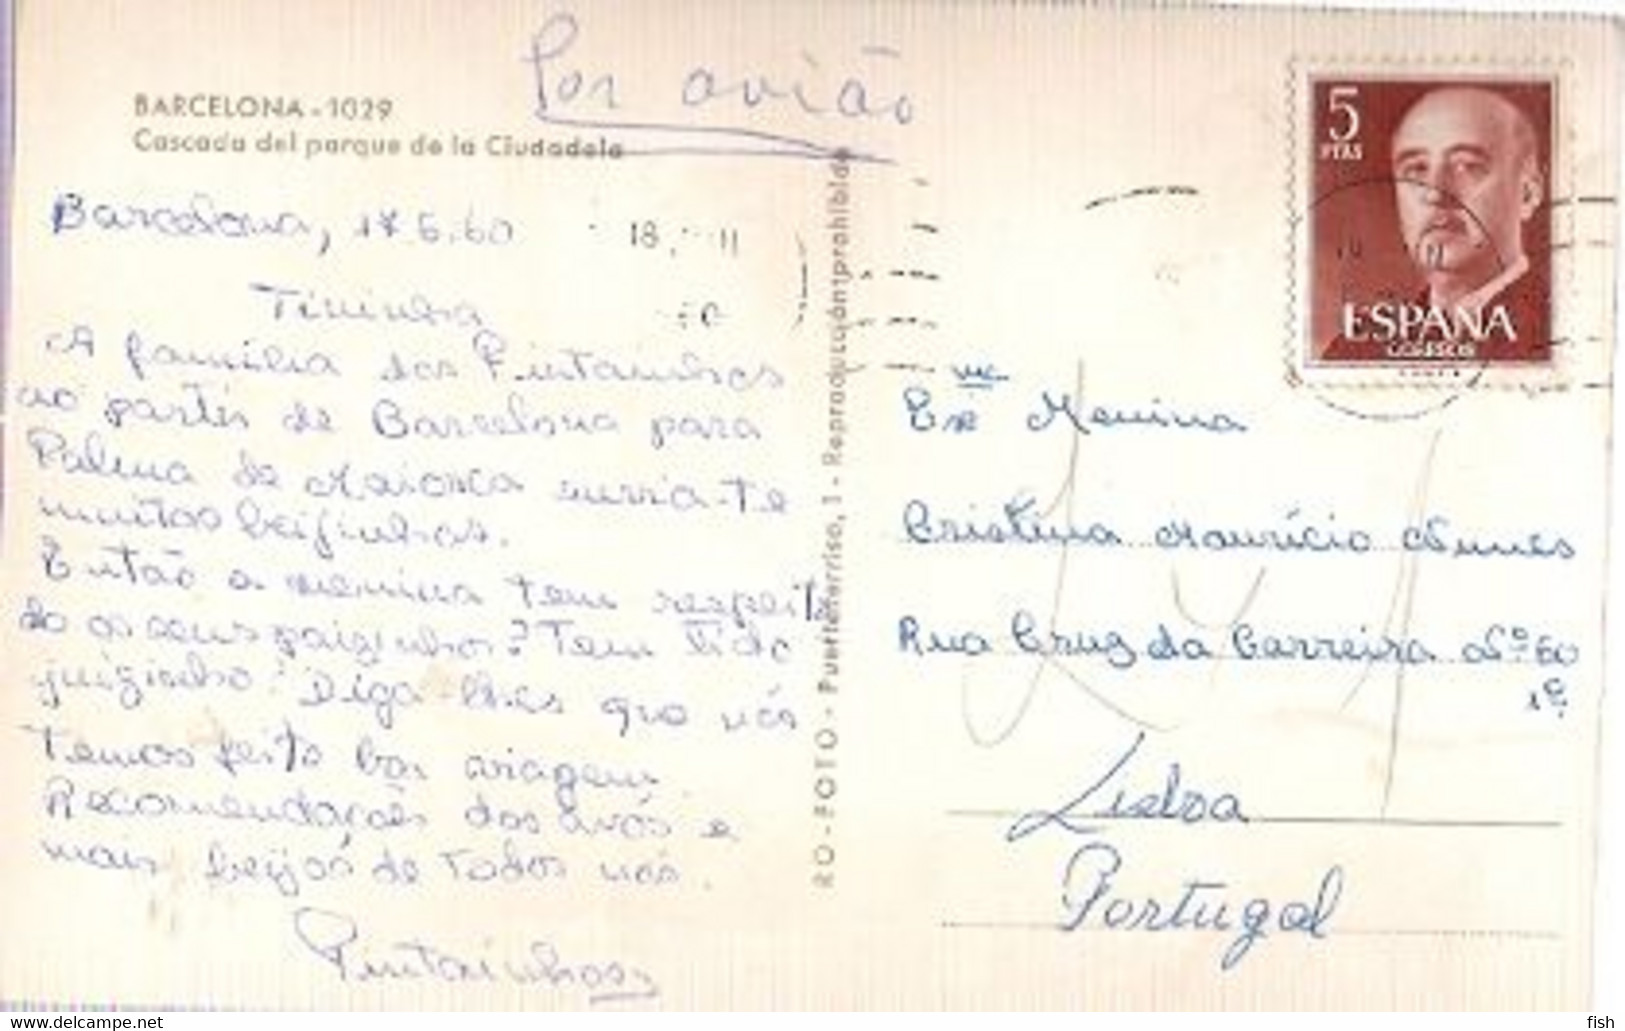 Por avião
BARCELONA - 1029
Cascada del parque de la Ciudadela
Barcelona, 17.6.60
18 11
60
Tininha
A família dos Pintainhos
ao partir de Barcelona para
Palma de Maiorca envia-te
muitos beijinhos.
Então a menina tem respeita
do os seus paizinhos? Tem tido
juizinho? Diga-lhes que nós
temos feito boa viagem.
Recomendações dos avós e
mais beijos de todos nós.
Pintainhos
RO-FOTO - Puertaferrisa, 1 - Reproducción prohibida
5
PTAS
ESPAÑA
CORREOS
Exma Menina
Cristina Maurício Nunes
Rua Cruz da Carreira Nº 60
1º
Lisboa
Portugal
fish
www.delcampe.net